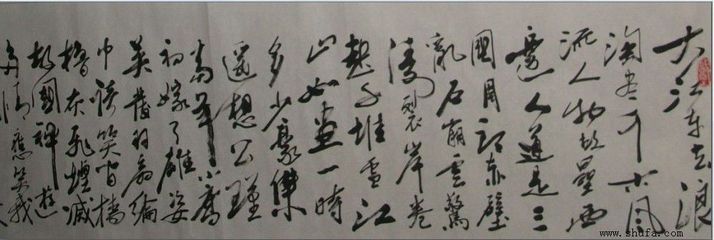 大江東去浪
淘盡千古風
流人物故壘西
邊人道是三
國周郎赤壁
亂石崩雲驚
濤裂岸卷
起千堆雪江
山如畫一時
多少豪傑
遙想公瑾
當年小喬
初嫁了雄姿
英發羽扇綸
巾談笑間檣
櫓灰飛煙滅
故國神遊
多情應笑我
www.shufa.com